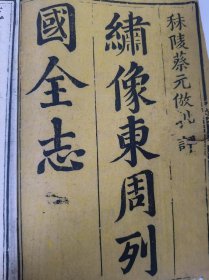 秣陵蔡元放批評
繡像東周列
國全志